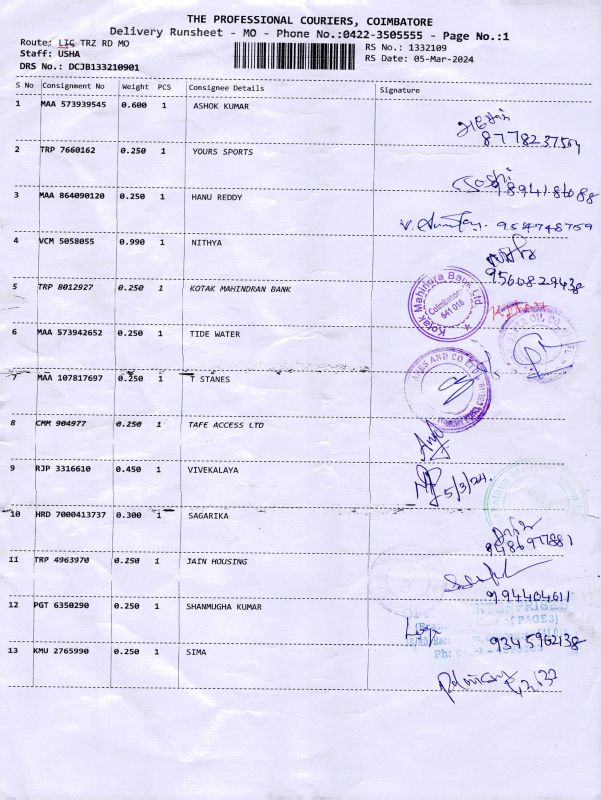 THE PROFESSIONAL COURIERS, COIMBATORE
Delivery Runsheet - MO - Phone No.:0422-3505555 - Page No.:1
Route: LIC TRZ RD MO
RS No.: 1332109
Staff: USHA
RS Date: 05-Mar-2024
DRS No.: DCJB133210901
S No Consignment No Weight PCS Consignee Details Signature
1 MAA 573939545 0.600 1 ASHOK KUMAR
2 TRP 7660162 0.250 1 YOURS SPORTS
3 MAA 864090120 0.250 1 HANU REDDY
9514748759
4 VCM 5058055 0.990 1 NITHYA
9560829438
5 TRP 8012927 0.250 1 KOTAK MAHINDRAN BANK
Kotak Mahindra Bank Ltd
Coimbatore
641 018
6 MAA 573942652 0.250 1 TIDE WATER
7 MAA 107817697 0.250 1 T STANES
8 CMM 904977 0.250 1 TAFE ACCESS LTD
9 RJP 3316610 0.450 1 VIVEKALAYA
5/3/24.
10 HRD 7000413737 0.300 1 SAGARIKA
11 TRP 4963970 0.250 1 JAIN HOUSING
994404611
12 PGT 6350290 0.250 1 SHANMUGHA KUMAR
9345962138
13 KMU 2765990 0.250 1 SIMA